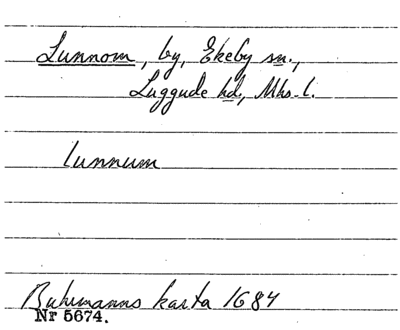 Lunnom, by, Ekeby sn.,
Luggude hd., Mhs. l.
lunnum
Buhrmanns karta 1684
Nr 5674.